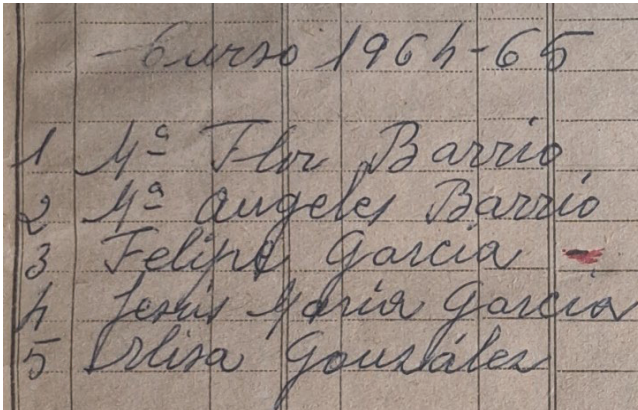 Curso 1964-65
1 Mª Flor Barrio
2 Mª Angeles Barrio
3 Felipe García
4 Jesús María García
5 Elisa González